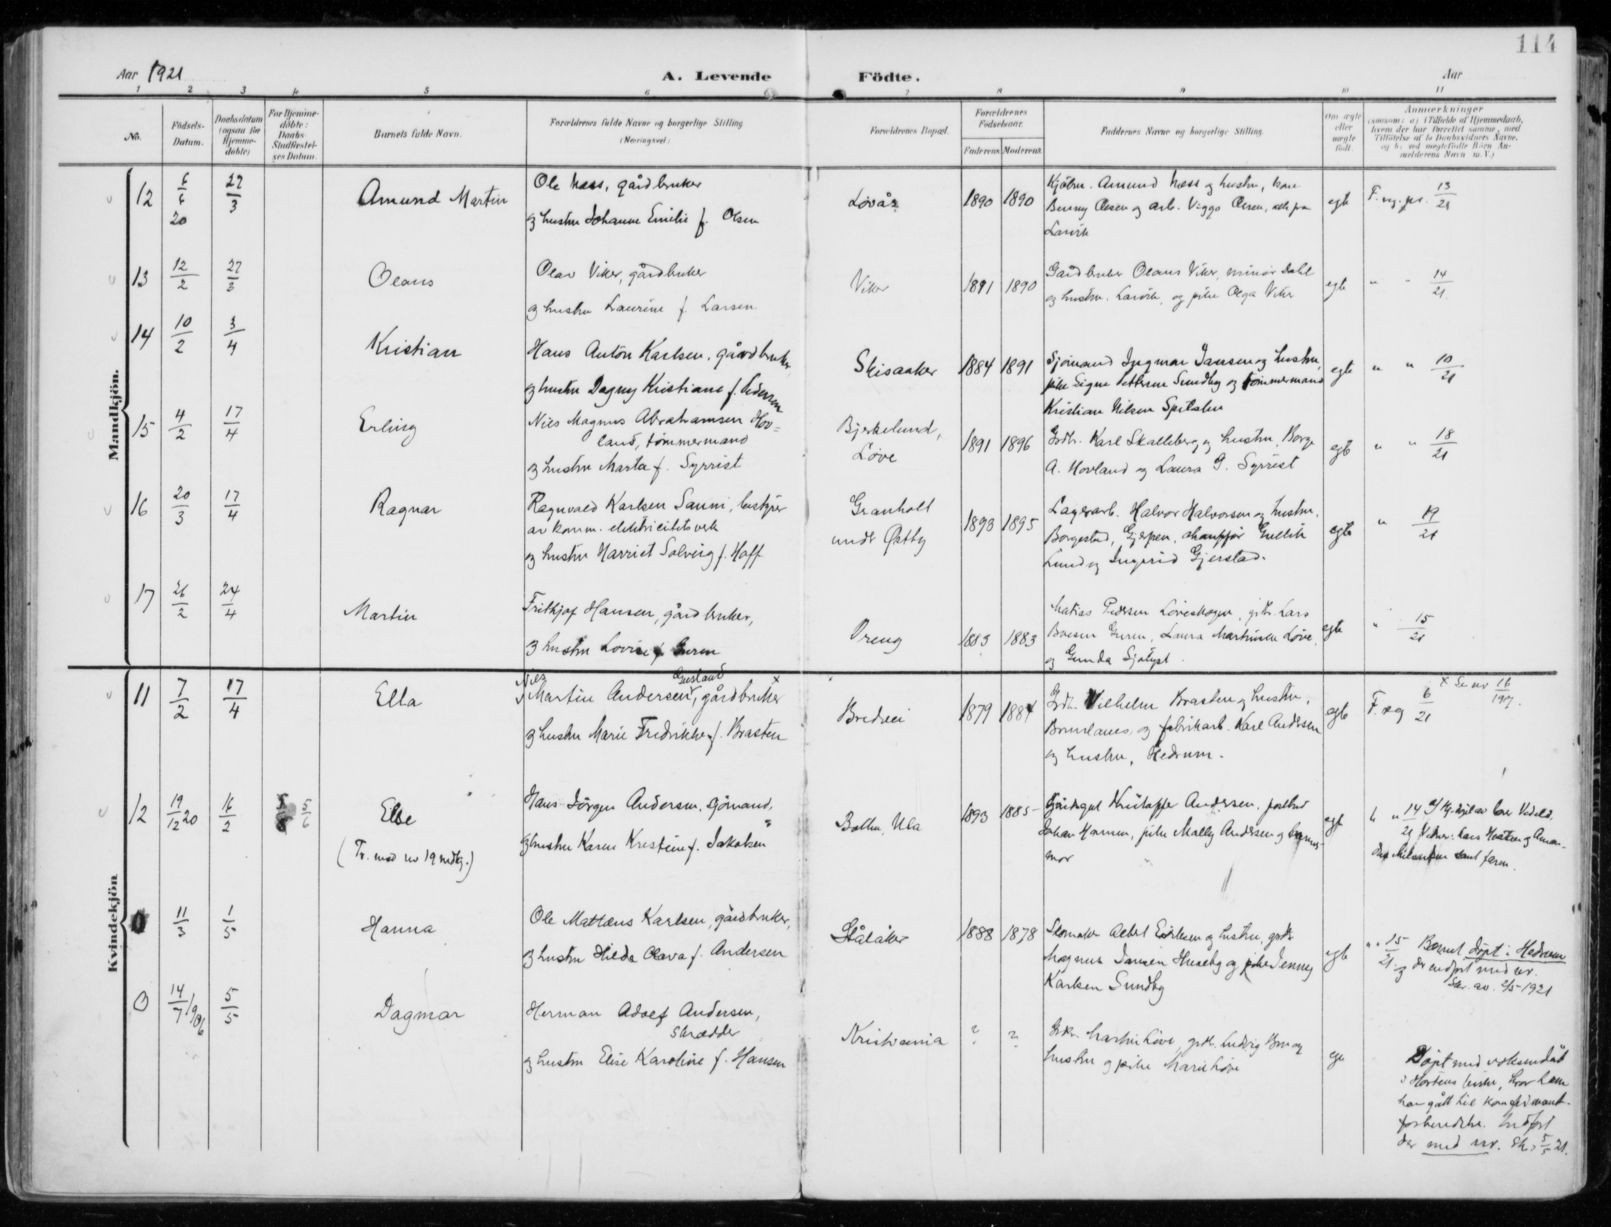 114
Aar 1921
A. Levende Födte.
Aar
1 2 3 4 5 6 7 8 9 10 11
No.
Födsels-Datum.
Daabsdatum (ogsaa for Hjemme-døbte)
For Hjemme-døbte: Daabs Stadfæstel-ses Datum.
Barnets fulde Navn.
Forældrenes fulde Navne og borgerlige Stilling (Næringsvei)
Forældrenes Bopæl.
Forældrenes Fødselsaar.
Faderens Moderens
Faddernes Navne og borgerlige Stilling.
Om ægte eller uægte født.
Anmærkninger
Mandkjön.
12 6/6 20 27/3 Amund Martin
Ole Næss, gårdbruker
og hustru Johanne Emilie f. Olsen
Løvås 1890 1890
Amund Næss og hustru,
Benny Olsen og arb. Viggo Olsen, alle fra
Larvik
egte 13/21
13 12/2 27/3 Olaus
Olav Viker, gårdbruker
og hustru Laurine f. Larsen
Viker 1891 1890
Gårdbruker Olaus Viker, Dahl
og hustru, Larvik, og pike Olga Viker
egte " " 14/21
14 10/2 3/4 Kristian
Hans Anton Karlsen, gårdbruker
og hustru Dagny Kristiane f. Pedersen
Skisaaker 1884 1891
Sjømand Ingmar Jansen og hustru,
pike Signe Pettersen Sundby og tømmermand
Kristian Nilsen
egte " " 10/21
15 4/2 17/4 Erling
Nils Magnus Abrahamsen Hov=
land, tømmermand
og hustru Marta f. Syrrist
Bjerkelund,
Løve
1891 1896
Grdbr. Karl Skalleberg og hustru, Borge
A. Hovland og Laura G. Syrrist
egte " " 18/21
16 20/3 17/4 Ragnar
Ragnvald Karlsen Sanni, bestyrer
av komm. elektricitetsverk
og hustru Harriet Solveig f. Hoff
Granholt
undr Østby
1893 1895
Lagerarb. Halvor Halvorsen og hustru,
Borgestad, Gjerpen, chauffør Gullik
Lund og Ingerid Gjerstad.
egte " 19/21
17 26/2 24/4 Martin
Frithjof Hansen, gårdbruker,
og hustru Lovise f. Guren
Oreng 1883 1883
Matias Pedersen Løveskogen, grbr. Lars
Guren, Laura Martinsen Løve
og Gunda Sjølyst.
egte " 15/21
Kvindekjön
11 7/2 17/4 Ella
Nils Gustand x
Martin Andersen, gårdbruker
og hustru Marie Fredrikke f. Brasten
Bredvei 1879 1884
Vilhelm Brasten og hustru,
Brunlanes, og fabrikarb. Karl Andersen
og hustru, Hedrum.
egte F. reg 6/21
x Se nr 16/1917.
12 19/12 20 16/2 5/6 Else
(Tv. med nr 19 mdkj.)
Hans Jörgen Andersen, sjömand,
og hustru Karen Kristine f. Jakobsen
Ula 1893 1885
Andersen,
Johan Hansen, pike Mally Andersen og
mor
egte 14/21
samt faren.
0 11/3 1/5 Hanna
Ole Matteus Karlsen, gårdbruker,
og hustru Hilda Olava f. Andersen
Stålåker 1888 1878
og hustru, grdbr.
Magnus Jansen Huseby og pike Jenny
Karlsen Sundby
egte " " 15/21 Barnet døpt i Hedrum
og der indført med nr.
2/5-1921
0 14/7 1906 5/5 Dagmar
Herman Adolf Andersen,
skrædder
og hustru Elise Karoline f. Hansen
Kristiania ? ?
Martin Løve, grbr. Ludvig
hustru og pike Marie Løve
Døpt med voksendåb
i Hortens kirke, hvor hun
har gått til konfirmant-
forberedelse. Indført
der med nr. 5/5 21.